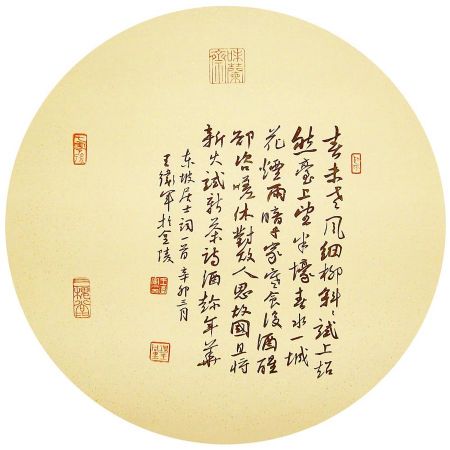 春未老风细柳斜〻試上超
然臺上望半壕春水一城
花煙雨暗千家寒食後酒醒
卻咨嗟休對故人思故國且将
新火試新茶詩酒趁年華
东坡居士词一首辛卯三月
王军於金陵